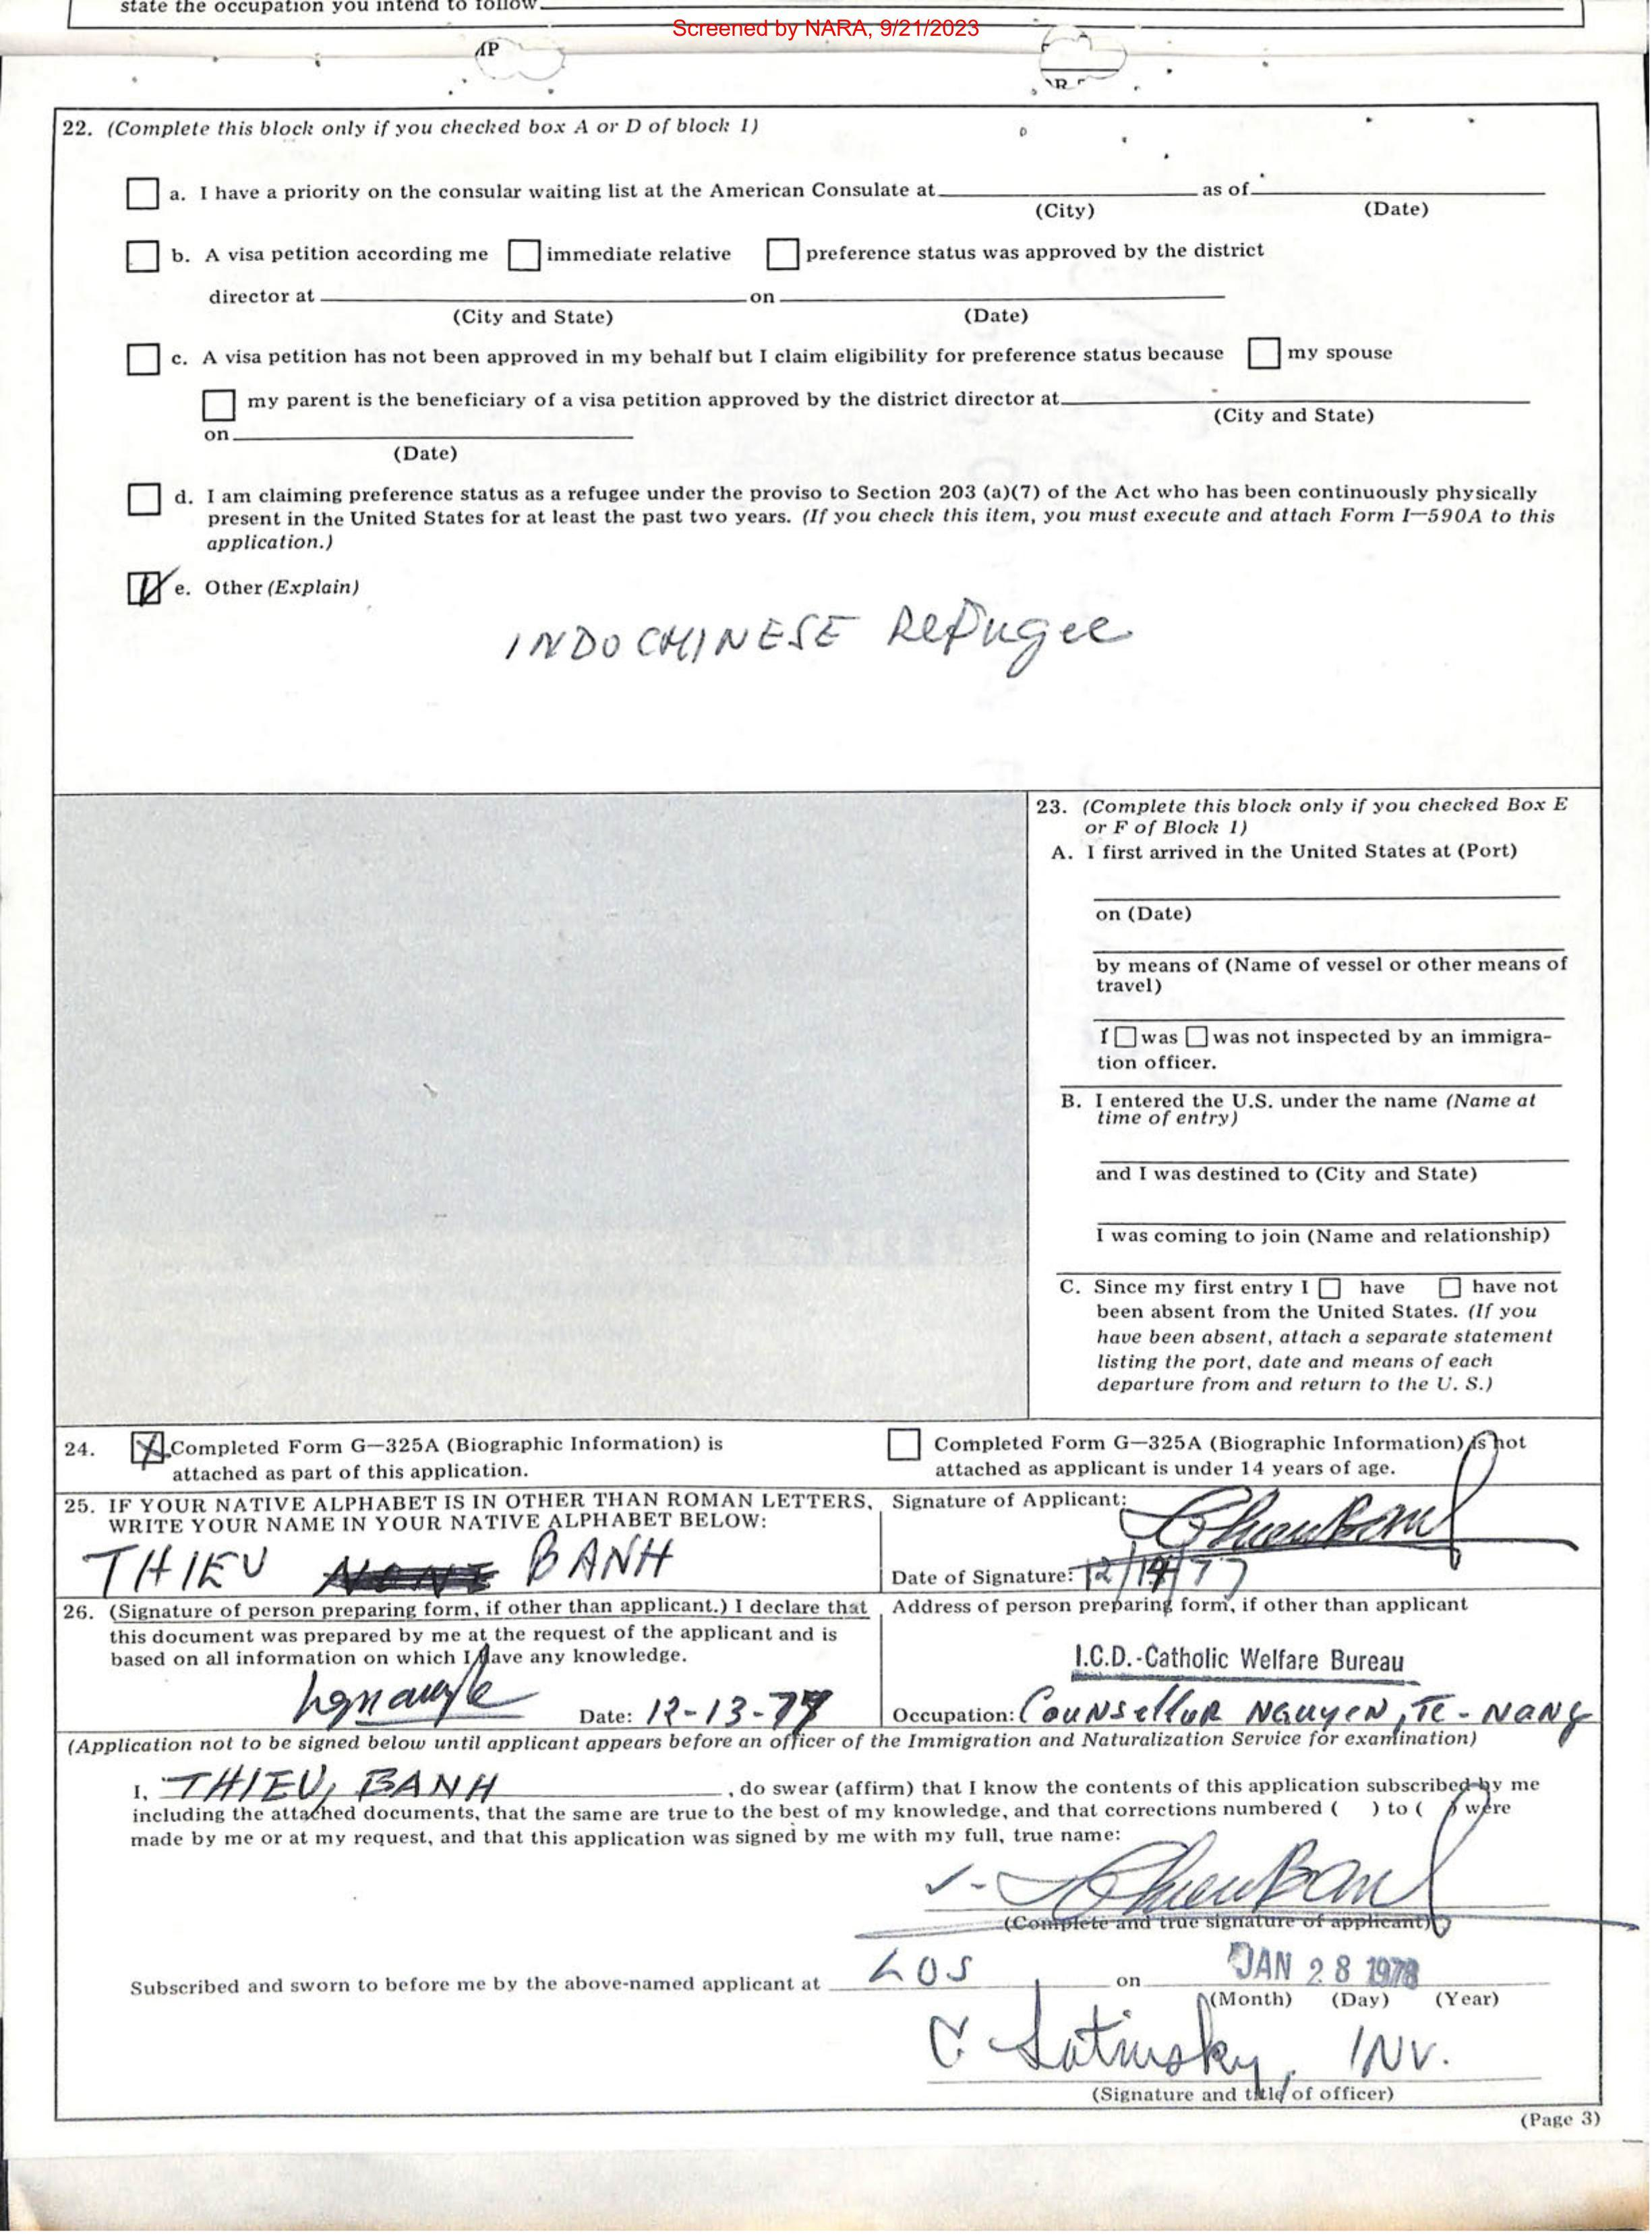 state the occupation you intend to follow
Screened by NARA, 9/21/2023
AP
22. (Complete this block only if you checked box A or D of block 1)
a. I have a priority on the consular waiting list at the American Consulate at as of
(City) (Date)
b. A visa petition according me immediate relative preference status was approved by the district
director at on
(City and State) (Date)
c. A visa petition has not been approved in my behalf but I claim eligibility for preference status because my spouse
my parent is the beneficiary of a visa petition approved by the district director at
(City and State)
on
(Date)
d. I am claiming preference status as a refugee under the proviso to Section 203 (a)(7) of the Act who has been continuously physically
present in the United States for at least the past two years. (If you check this item, you must execute and attach Form I—590A to this
application.)
e. Other (Explain)
INDOCHINESE Refugee
23. (Complete this block only if you checked Box E
or F of Block 1)
A. I first arrived in the United States at (Port)
on (Date)
by means of (Name of vessel or other means of
travel)
I was was not inspected by an immigra-
tion officer.
B. I entered the U.S. under the name (Name at
time of entry)
and I was destined to (City and State)
I was coming to join (Name and relationship)
C. Since my first entry I have have not
been absent from the United States. (If you
have been absent, attach a separate statement
listing the port, date and means of each
departure from and return to the U. S.)
24. Completed Form G—325A (Biographic Information) is
attached as part of this application.
Completed Form G—325A (Biographic Information) is not
attached as applicant is under 14 years of age.
25. IF YOUR NATIVE ALPHABET IS IN OTHER THAN ROMAN LETTERS,
WRITE YOUR NAME IN YOUR NATIVE ALPHABET BELOW:
THIEU BANH
Signature of Applicant:
Date of Signature: 12/14/77
26. (Signature of person preparing form, if other than applicant.) I declare that
this document was prepared by me at the request of the applicant and is
based on all information on which I have any knowledge.
Date: 12-13-77
Address of person preparing form, if other than applicant
I.C.D.-Catholic Welfare Bureau
Occupation: Counsellor NGUYEN, TE-NANG
(Application not to be signed below until applicant appears before an officer of the Immigration and Naturalization Service for examination)
I, THIEU, BANH , do swear (affirm) that I know the contents of this application subscribed by me
including the attached documents, that the same are true to the best of my knowledge, and that corrections numbered ( ) to ( ) were
made by me or at my request, and that this application was signed by me with my full, true name:
(Complete and true signature of applicant)
Subscribed and sworn to before me by the above-named applicant at LOS on JAN 28 1978
(Month) (Day) (Year)
INV.
(Signature and title of officer)
(Page 3)